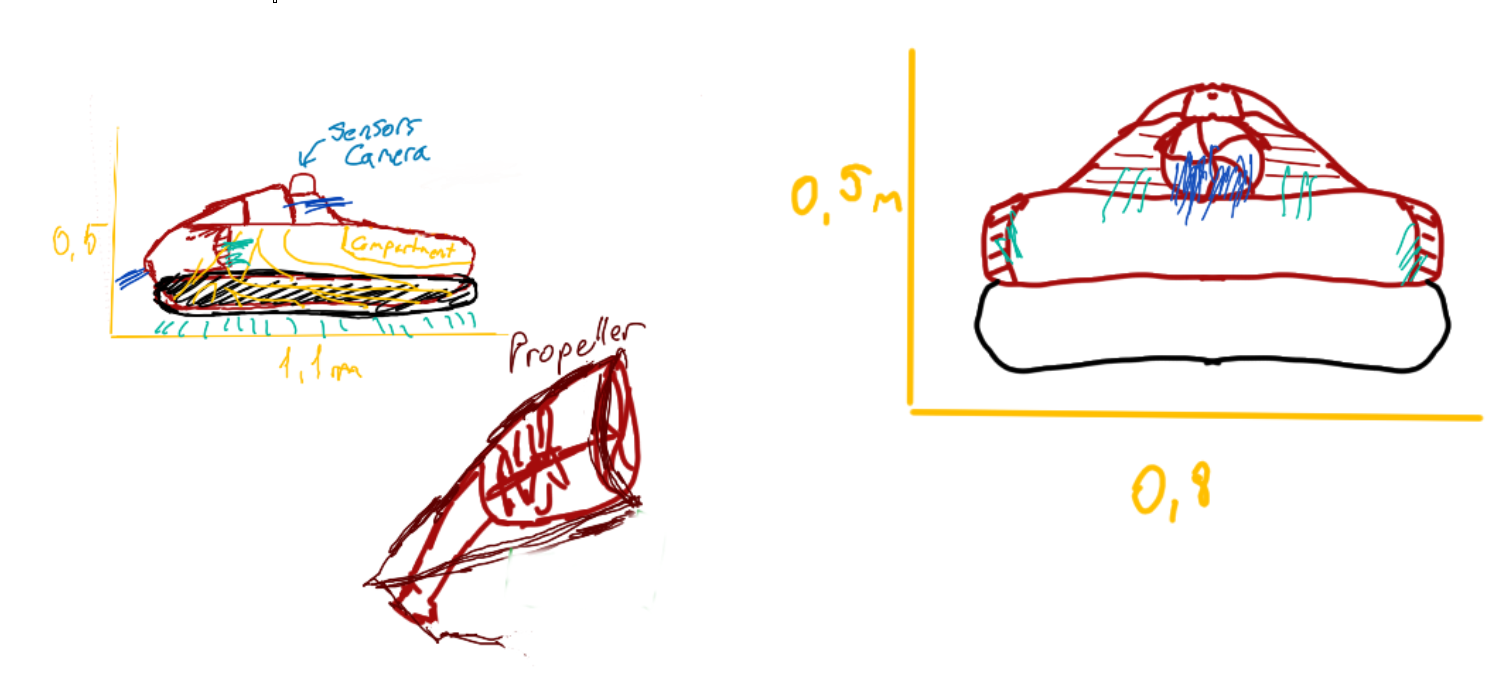 Sensors
Camera
0,5
Compartment
1,1 m
Propeller
0,5 m
0,8